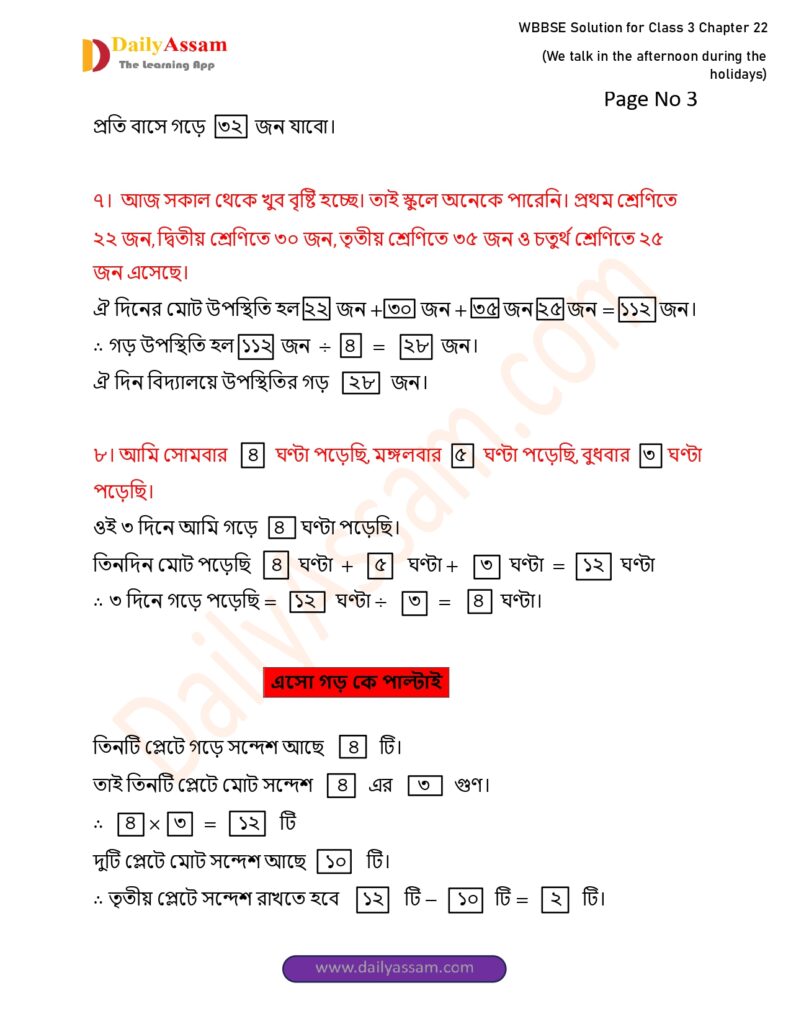 DailyAssam
The Learning App
WBBSE Solution for Class 3 Chapter 22
(We talk in the afternoon during the
holidays)
Page No 3
প্রতি বাসে গড়ে ৩২ জন যাবো।
৭। আজ সকাল থেকে খুব বৃষ্টি হচ্ছে। তাই স্কুলে অনেকে পারেনি। প্রথম শ্রেণিতে
২২ জন, দ্বিতীয় শ্রেণিতে ৩০ জন, তৃতীয় শ্রেণিতে ৩৫ জন ও চতুর্থ শ্রেণিতে ২৫
জন এসেছে।
ঐ দিনের মোট উপস্থিতি হল ২২ জন + ৩০ জন + ৩৫ জন ২৫ জন = ১১২ জন।
∴ গড় উপস্থিতি হল ১১২ জন ÷ ৪ = ২৮ জন।
ঐ দিন বিদ্যালয়ে উপস্থিতির গড় ২৮ জন।
৮। আমি সোমবার ৪ ঘণ্টা পড়েছি, মঙ্গলবার ৫ ঘণ্টা পড়েছি, বুধবার ৩ ঘণ্টা
পড়েছি।
ওই ৩ দিনে আমি গড়ে ৪ ঘণ্টা পড়েছি।
তিনদিন মোট পড়েছি ৪ ঘণ্টা + ৫ ঘণ্টা + ৩ ঘণ্টা = ১২ ঘণ্টা
∴ ৩ দিনে গড়ে পড়েছি = ১২ ঘণ্টা ÷ ৩ = ৪ ঘণ্টা।
এসো গড় কে পাল্টাই
তিনটি প্লেটে গড়ে সন্দেশ আছে ৪ টি।
তাই তিনটি প্লেটে মোট সন্দেশ ৪ এর ৩ গুণ।
∴ ৪ × ৩ = ১২ টি
দুটি প্লেটে মোট সন্দেশ আছে ১০ টি।
∴ তৃতীয় প্লেটে সন্দেশ রাখতে হবে ১২ টি – ১০ টি = ২ টি।
DailyAssam.com
www.dailyassam.com